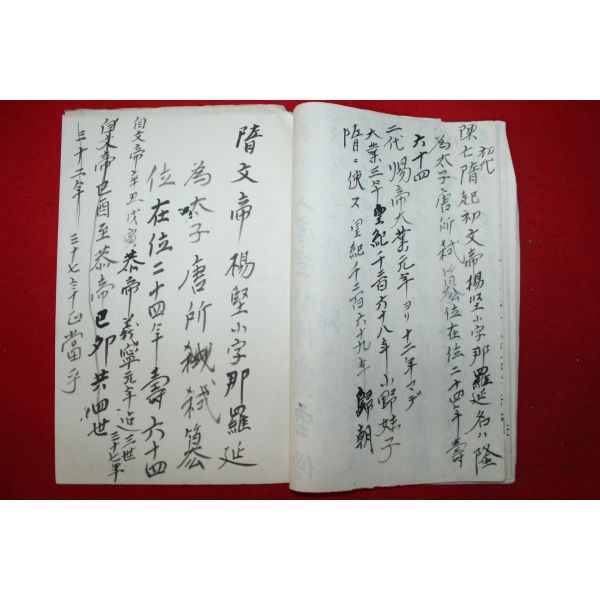 初代
陳亡隋起初文帝楊堅小字那羅延名ハ隆
為太子唐所弑篡位在位二十四年壽
六十四
二代 煬帝大業元年ヨリ十二年マデ
大業三年皇紀千二百六十八年小野妹子
隋へ使ス皇紀千二百六十九年 歸朝
隋文帝楊堅小字那羅延
為太子唐所弑篡
位在位二十四年壽六十四
自文帝辛丑戊寅恭帝義寧元年迄三世
三十七年
皇帝己酉至恭帝己卯共四世
三十二年